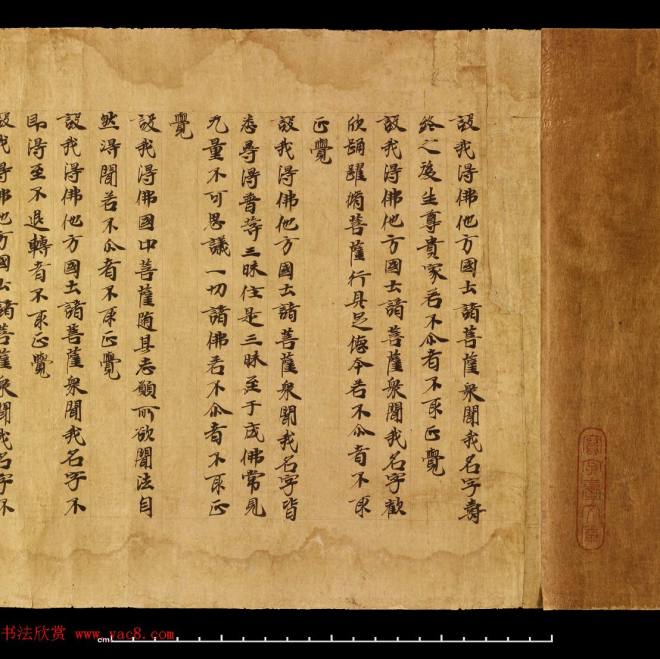 設我得佛他方國土諸菩薩衆聞我名字壽
終之後生尊貴家若不尒者不取正覺
設我得佛他方國土諸菩薩衆聞我名字歡
欣踊躍脩菩薩行具足德夲若不尒者不取
正覺
設我得佛他方國土諸菩薩衆聞我名字皆
悉尋得普等三昧住是三昧至于成佛常見
无量不可思議一切諸佛若不尒者不取正
覺
設我得佛國中菩薩随其志願所欲聞法自
然得聞若不尒者不取正覺
設我得佛他方國土諸菩薩衆聞我名字不
即得至不退轉者不取正覺
設我得佛他方國土諸菩薩衆聞我名字不
书法欣赏 www.yac8.com
cm